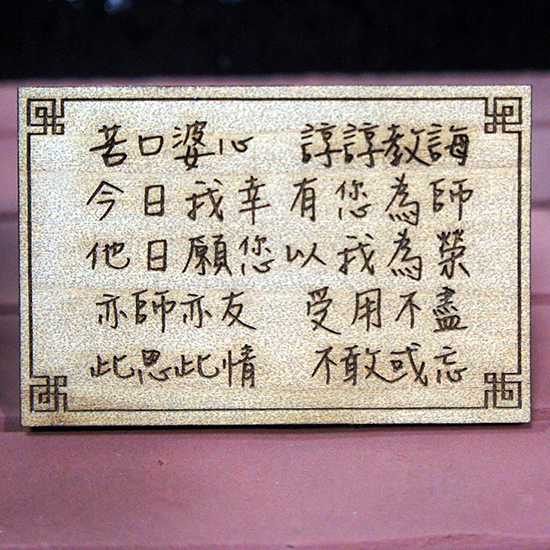 苦口婆心 諄諄教誨
今日我幸有您為師
他日願您以我為榮
亦師亦友 受用不盡
此恩此情 不敢或忘